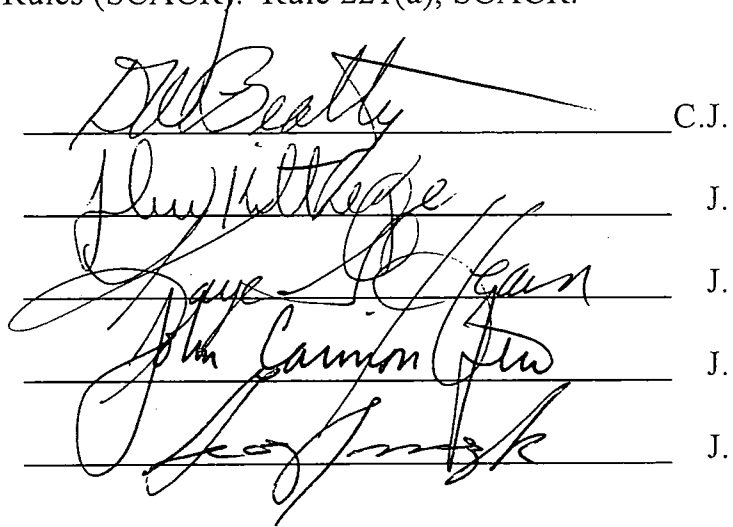 Rules (SCACR). Rule 221(a), SCACR.
Beatty C.J.
Kittredge J.
Kaye G. Hearn J.
John Cannon Few J.
J.